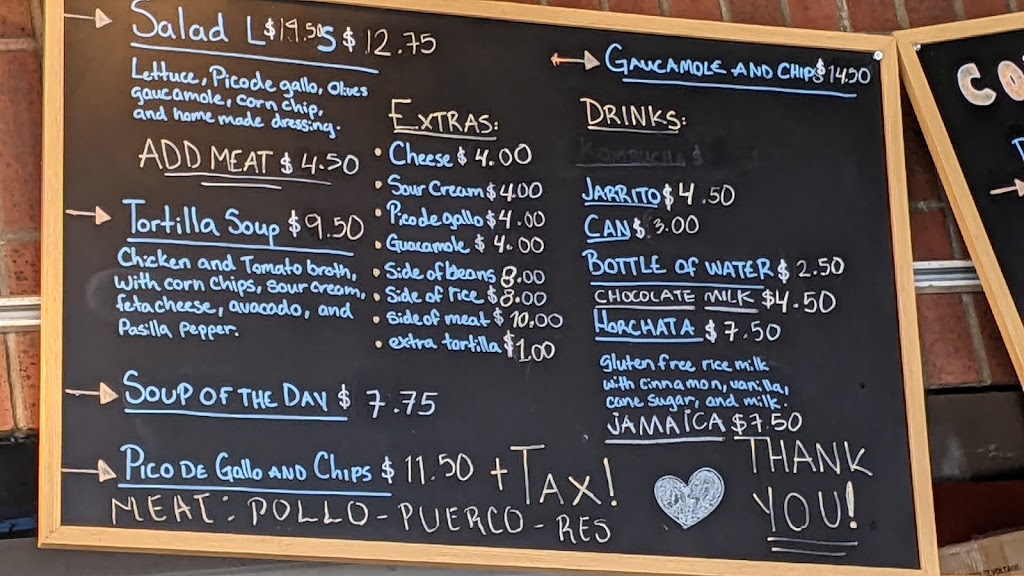 Salad L $14.50 S $12.75
Lettuce, Pico de gallo, Olives
gaucamole, corn chip,
and home made dressing.
ADD MEAT $4.50
Tortilla Soup $9.50
Chicken and Tomato broth,
with corn chips, sour cream,
feta cheese, avacado, and
Pasilla Pepper.
SOUP OF THE DAY $7.75
PICO DE Gallo AND Chips $11.50 + TAX!
MEAT: POLLO - PUERCO - RES
EXTRAS:
• Cheese $4.00
• Sour Cream $4.00
• Pico de gallo $4.00
• Guacamole $4.00
• Side of beans 8.00
• Side of rice $8.00
• Side of meat $10.00
• extra tortilla $1.00
GAUCAMOLE AND CHIPS $14.50
DRINKS:
KOMBUCHA $
JARRITO $4.50
CAN $3.00
BOTTLE OF WATER $2.50
CHOCOLATE MILK $4.50
HORCHATA $7.50
Gluten free rice milk
with cinnamon, vanilla,
cane sugar, and milk.
JAMAICA $7.50
THANK
YOU!
CO